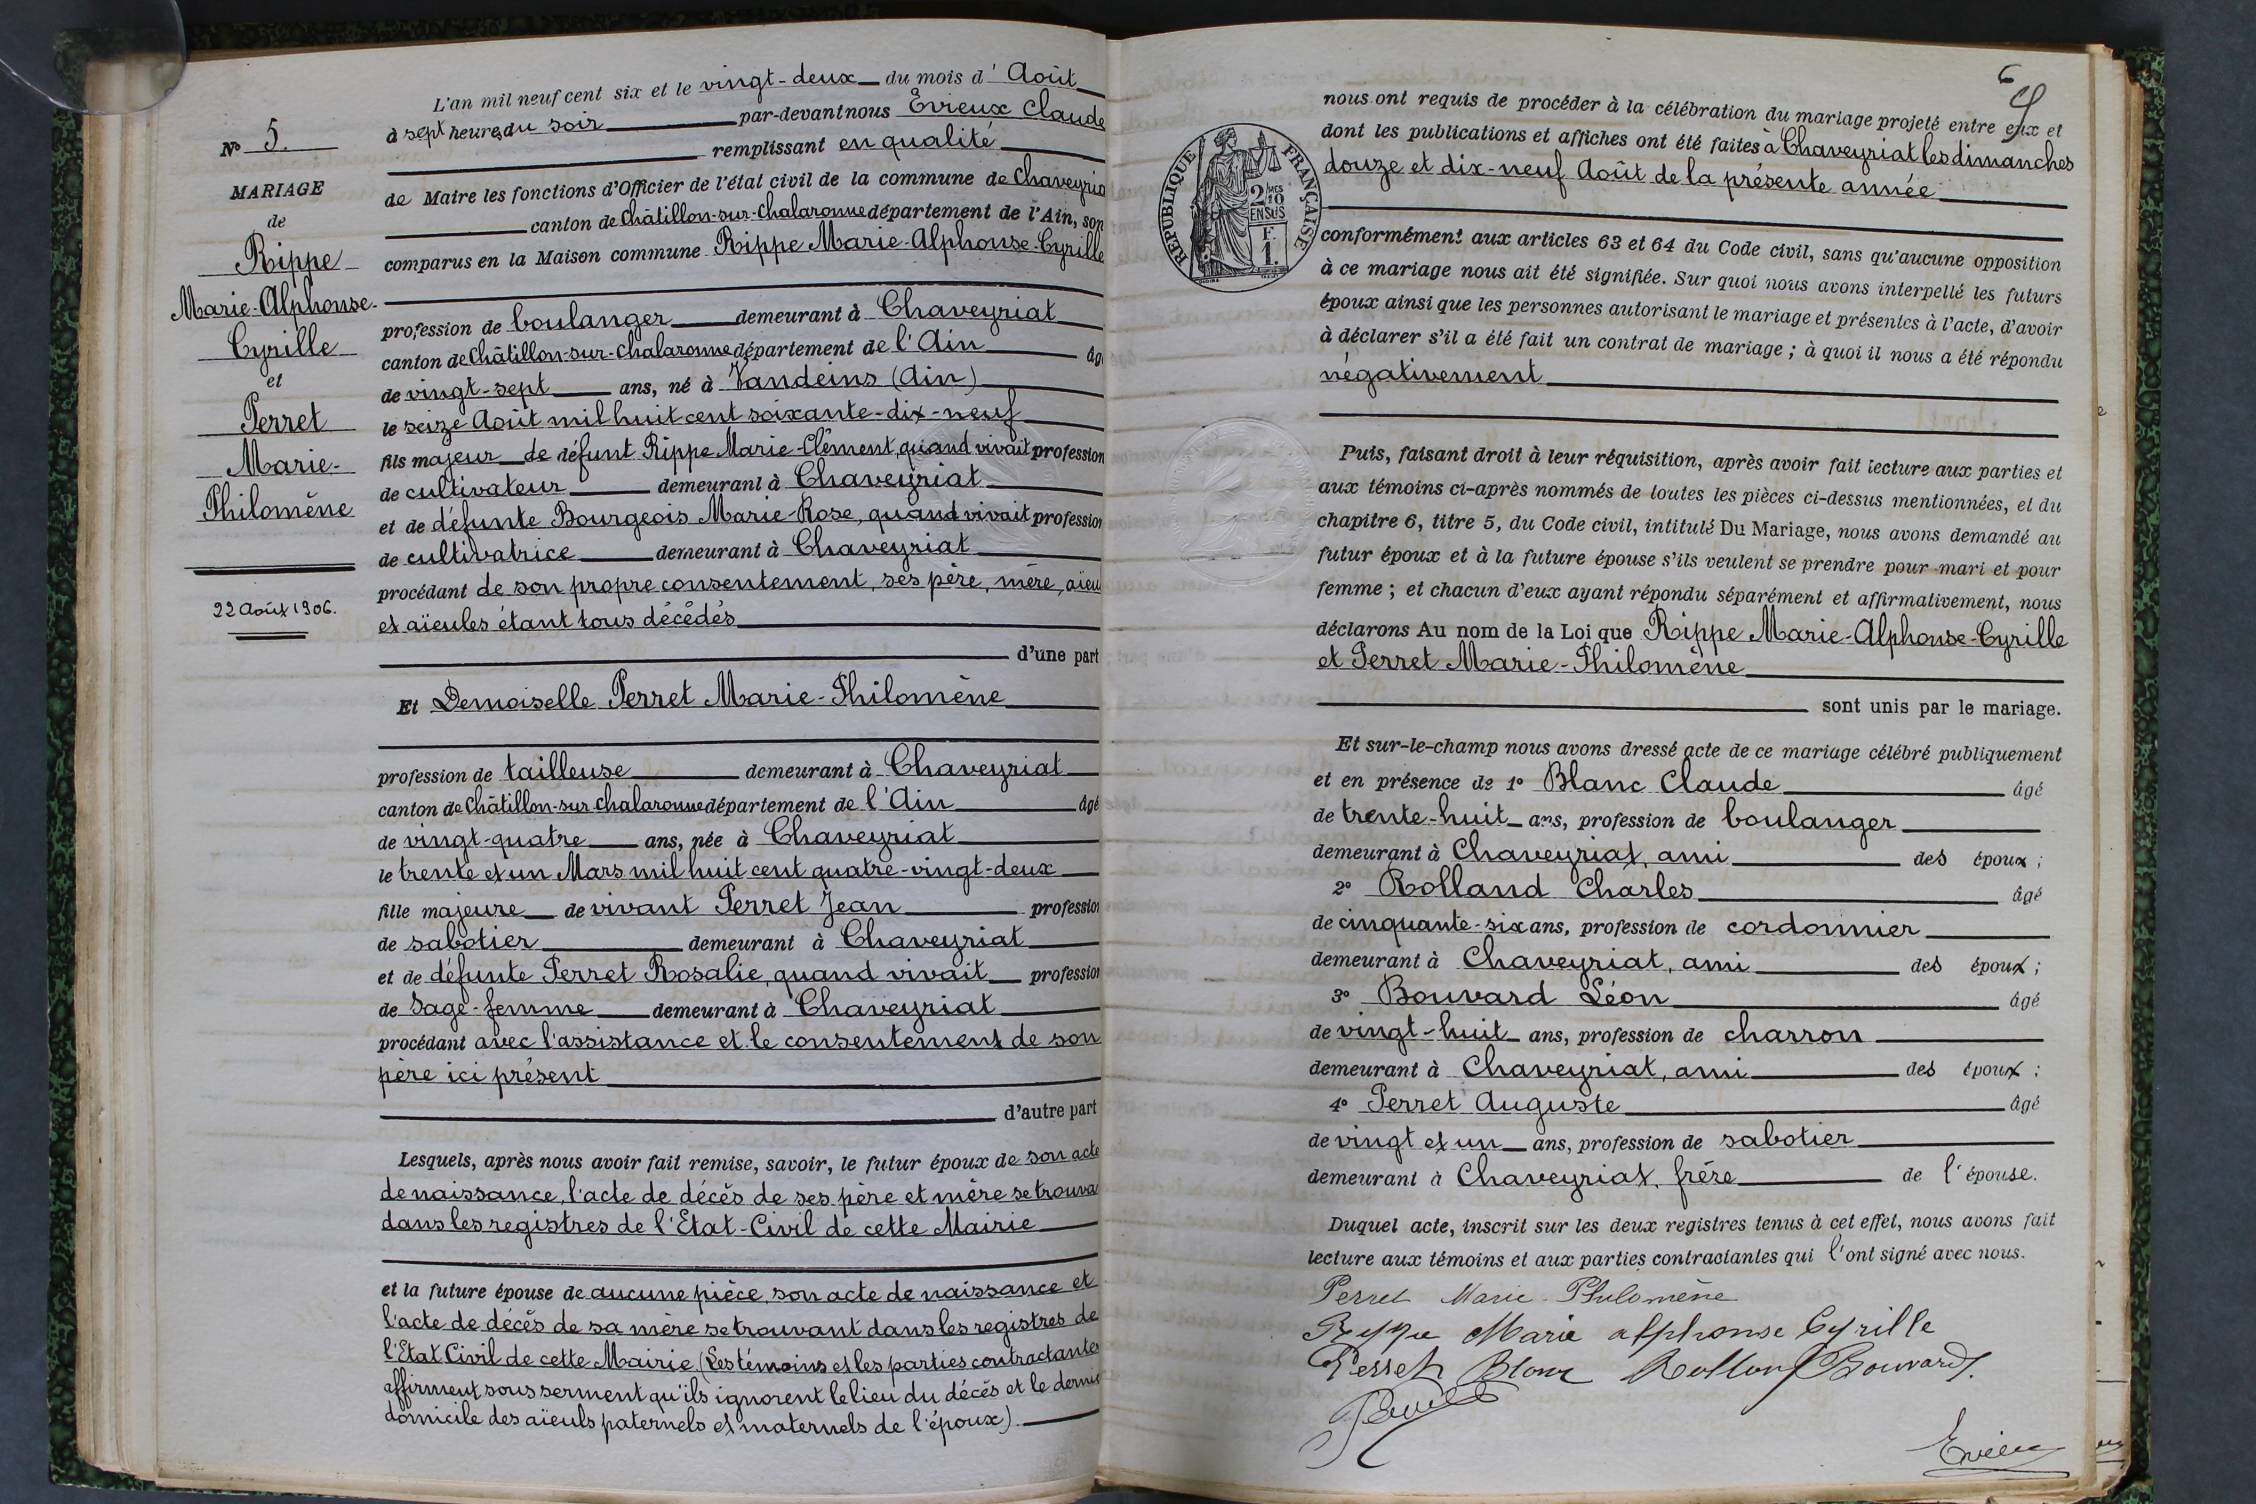 N° 5.
MARIAGE
de
Rippe
Marie-Alphonse-
Cyrille
et
Perret
Marie-
Philomène
22 Août 1906.
L'an mil neuf cent six et le vingt-deux du mois d'Août
à sept heures du soir par-devant nous Evieux Claude
remplissant en qualité
de Maire les fonctions d'Officier de l'état civil de la commune de Chaveyria
canton de Châtillon-sur-Chalaronne département de l'Ain, son
comparus en la Maison commune Rippe Marie-Alphonse-Cyrille
profession de boulanger demeurant à Chaveyriat
canton de Châtillon-sur-Chalaronne département de l'Ain âg
de vingt-sept ans, né à Vandeins (Ain)
le seize Août mil huit cent soixante-dix-neuf
fils majeur de défunt Rippe Marie-Clément, quand vivait profession
de cultivateur demeurant à Chaveyriat
et de défunte Bourgeois Marie-Rose, quand vivait profession
de cultivatrice demeurant à Chaveyriat
procédant de son propre consentement, ses père, mère, aïeu
et aïeules étant tous décédés
d'une part
Et Demoiselle Perret Marie-Philomène
profession de tailleuse demeurant à Chaveyriat
canton de Châtillon-sur-Chalaronne département de l'Ain âgé
de vingt-quatre ans, née à Chaveyriat
le trente et un Mars mil huit cent quatre-vingt-deux
fille majeure de vivant Perret Jean profession
de sabotier demeurant à Chaveyriat
et de défunte Perret Rosalie, quand vivait profession
de Sage-femme demeurant à Chaveyriat
procédant avec l'assistance et le consentement de son
père ici présent
d'autre part
Lesquels, après nous avoir fait remise, savoir, le futur époux de son acte
de naissance, l'acte de décès de ses père et mère se trouva
dans les registres de l'Etat-Civil de cette Mairie
et la future épouse de aucune pièce, son acte de naissance et
l'acte de décès de sa mère se trouvant dans les registres de
l'Etat Civil de cette Mairie (Les témoins et les parties contractantes
affirment sous serment qu'ils ignorent le lieu du décès et le dernie
domicile des aïeuls paternels et maternels de l'époux).
6
RÉPUBLIQUE FRANÇAISE
2/10 MES
EN SUS
F.
1.
nous ont requis de procéder à la célébration du mariage projeté entre eux et
dont les publications et affiches ont été faites à Chaveyriat les dimanches
douze et dix-neuf Août de la présente année
conformément aux articles 63 et 64 du Code civil, sans qu'aucune opposition
à ce mariage nous ait été signifiée. Sur quoi nous avons interpellé les futurs
époux ainsi que les personnes autorisant le mariage et présentes à l'acte, d'avoir
à déclarer s'il a été fait un contrat de mariage ; à quoi il nous a été répondu
négativement
Puis, faisant droit à leur réquisition, après avoir fait lecture aux parties et
aux témoins ci-après nommés de toutes les pièces ci-dessus mentionnées, et du
chapitre 6, titre 5, du Code civil, intitulé Du Mariage, nous avons demandé au
futur époux et à la future épouse s'ils veulent se prendre pour mari et pour
femme ; et chacun d'eux ayant répondu séparément et affirmativement, nous
déclarons Au nom de la Loi que Rippe Marie-Alphonse-Cyrille
et Perret Marie-Philomène
sont unis par le mariage.
Et sur-le-champ nous avons dressé acte de ce mariage célébré publiquement
et en présence de 1° Blanc Claude âgé
de trente-huit ans, profession de boulanger
demeurant à Chaveyriat, ami des époux ;
2° Rolland Charles âgé
de cinquante-six ans, profession de cordonnier
demeurant à Chaveyriat, ami des époux ;
3° Bouvard Léon âgé
de vingt-huit ans, profession de charron
demeurant à Chaveyriat, ami des époux ;
4° Perret Auguste âgé
de vingt et un ans, profession de sabotier
demeurant à Chaveyriat, frère de l'épouse.
Duquel acte, inscrit sur les deux registres tenus à cet effet, nous avons fait
lecture aux témoins et aux parties contractantes qui l'ont signé avec nous.
Perret Marie-Philomène
Rippe Marie alphonse Cyrille
Perret Blanc Rolland Bouvard
Evieux